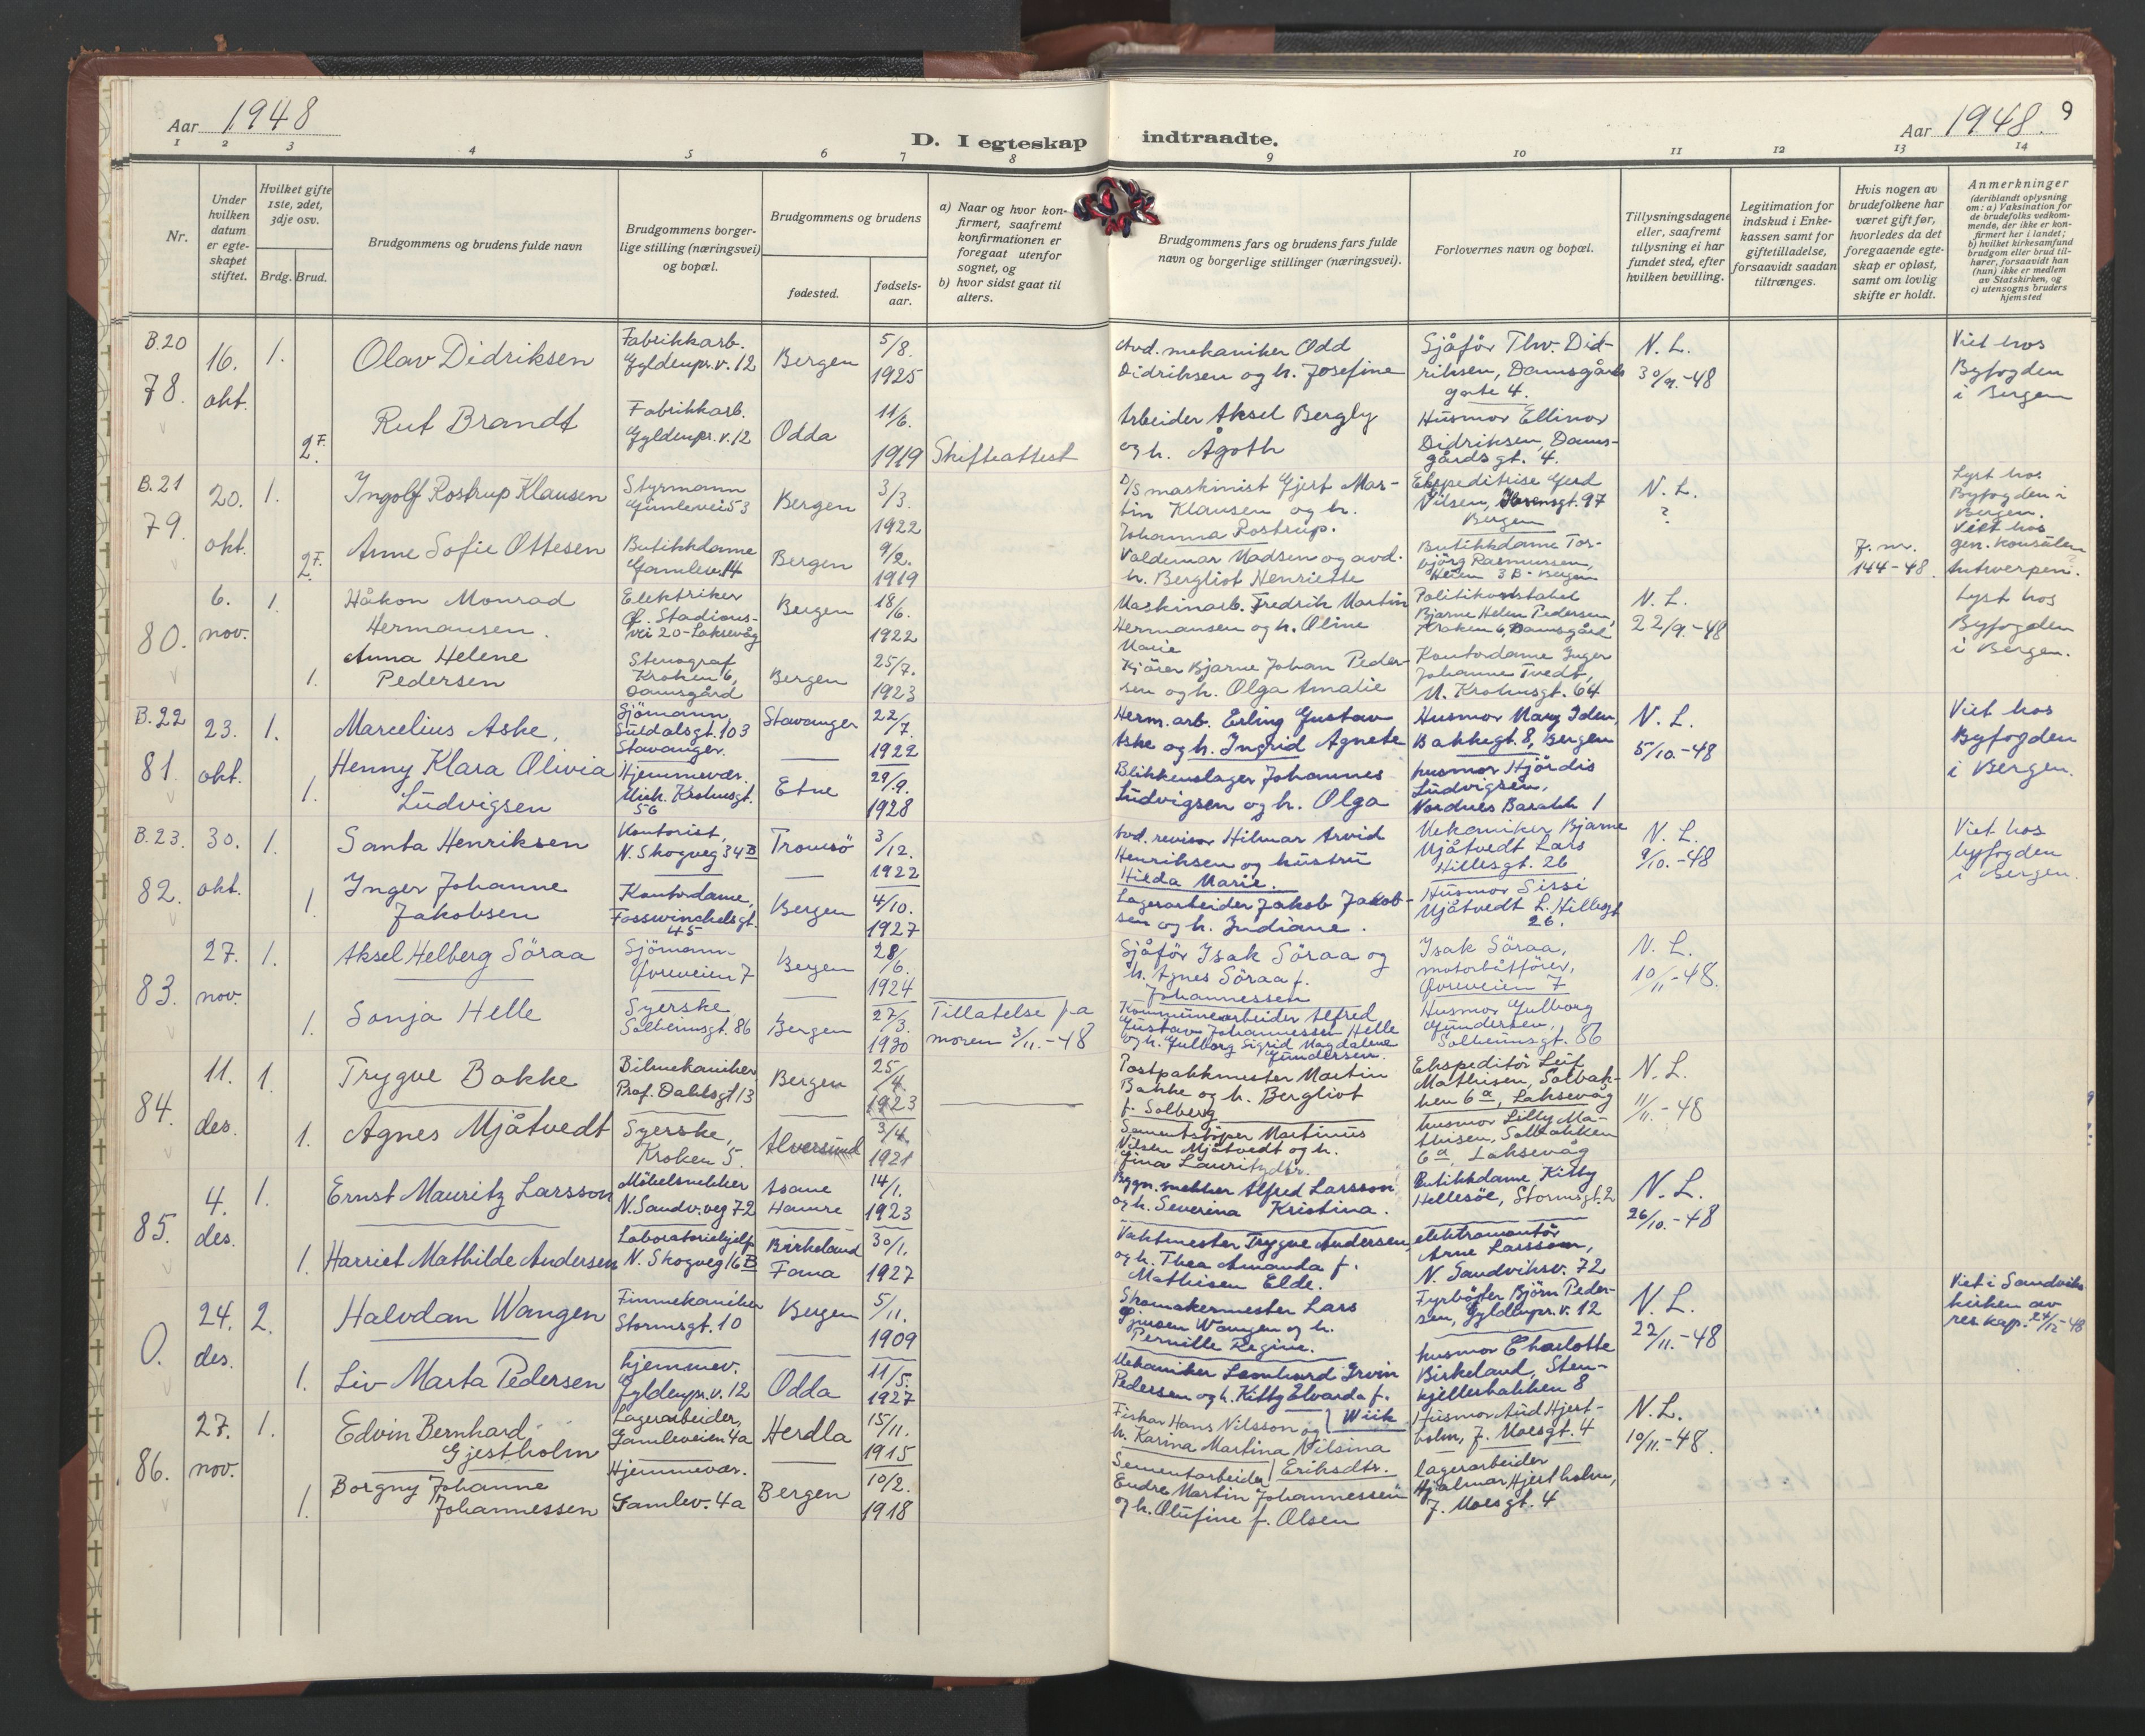 Aar 1948
D. I egteskap indtraadte.
Aar 1948. 9
1 2 3 4 5 6 7 8 9 10 11 12 13 14
Nr.
Under hvilken datum er egteskapet stiftet.
Hvilket gifte 1ste, 2det, 3dje osv.
Brdg. Brud.
Brudgommens og brudens fulde navn
Brudgommens borgerlige stilling (næringsvei) og bopæl.
Brudgommens og brudens
fødested.
fødselsaar.
a) Naar og hvor konfirmert, saafremt konfirmationen er foregaat utenfor sognet, og
b) hvor sidst gaat til alters.
Brudgommens fars og brudens fars fulde navn og borgerlige stillinger (næringsvei).
Forlovernes navn og bopæl.
Tillysningsdagene eller, saafremt tillysning ei har fundet sted, efter hvilken bevilling.
Legitimation for indskud i Enkekassen samt for giftetilladelse, forsaavidt saadan tiltrænges.
Hvis nogen av brudefolkene har været gift før, hvorledes da det foregaaende egteskap er opløst, samt om lovlig skifte er holdt.
Anmerkninger
(deriblandt oplysning om: a) Vaksination for de brudefolks vedkommende, der ikke er konfirmert her i landet;
b) hvilket kirkesamfund brudgom eller brud tilhører, forsaavidt han (hun) ikke er medlem av Statskirken, og
c) utensogns bruders hjemsted
B.20
78.
16. okt.
1.
Olav Didriksen
Fabrikkarb.
Gyldenpr.v. 12
Bergen
5/8. 1925
Avd. mekaniker Odd
Didriksen og h. Josefine
Sjåfør Thv. Did-
riksen, Damsgårds
gate 4.
N. L.
30/9.-48
Viet hos
Byfogden
i Bergen
2F.
Rut Brandt
Fabrikkarb.
Gyldenpr. v. 12
Odda
11/6. 1919
Skifteattest
Arbeider Aksel Bergly
og h. Ågoth
Husmor Ellinor
Didriksen, Dams-
gårdsgt. 4.
B.21
79.
20. okt.
1.
Ingolf Rostrup Klausen
Styrmann
Gamlevei 53
Bergen
3/3. 1922
D/S maskinist Gjert Mar-
tin Klausen og h.
Johanna Rostrup.
Ekspeditrise Gerd
Nilsen, Ibsensgt. 97
Bergen
N. L.
?
Lyst hos
Byfogden i
Bergen.
Viet hos
gen. konsulen
Antwerpen.
2F.
Anne Sofie Ottesen
Butikkdame
Gamlev. 14
Bergen
9/2. 1919
Valdemar Madsen og avd.
h. Bergliot Henriette
Butikkdame Tor-
björg Rasmussen,
Heien 3B - Bergen
J. nr.
144-48.
80.
6. nov.
1.
Håkon Monrad
Hermansen.
Elektriker
Stadions-
vei 20 - Laksevåg
Bergen
18/6. 1922
Maskinarb. Fredrik Martin
Hermansen og h. Oline
Marie
Politikonstabel
Bjarne Helen Pedersen,
Kroken 6, Damsgård
N. L.
22/9.-48
Lyst hos
Byfogden
i Bergen.
1.
Anna Helene
Pedersen
Stenograf
Kroken 6,
Damsgård
Bergen
25/7. 1923
Kjörer Bjarne Johan Peder-
sen og h. Olga Amalie
Kontordame Inger
Johanne Tvedt,
M. Krohnsgt. 64
B.22
81.
23. okt.
1.
Marcelius Aske,
Sjömann
Suldalsgt. 103
Stavanger.
Stavanger
22/7. 1922
Herm. arb. Erling Gustav
Aske og h. Ingrid Agnete
Husmor Mary Iden,
Bakkegt. 8, Bergen
N. L.
5/10.-48
Viet hos
Byfogden
i Bergen.
1.
Henny Klara Olivia
Ludvigsen
Hjemmevær.
Mich. Krohnsgt.
56
Etne
29/9. 1928
Blikkenslager Johannes
Ludvigsen og h. Olga
husmor Hjördis
Ludvigsen,
Nordnes Barakk 1
B.23.
82.
30. okt.
1.
Santa Henriksen
Kontorist,
N. Skogveg 34B
Tromsö
3/12. 1922
Avd. revisor Hilmar Arvid
Henriksen og hustru
Hilda Marie.
Mekaniker Bjarne
Mjåtvedt Lars
Hillesgt. 26
N. L.
9/10.-48
Viet hos
byfogden
i Bergen.
1.
Inger Johanne
Jakobsen
Kontordame,
Fosswinckelsgt.
45
Bergen
4/10. 1927
Lagerarbeider Jakob Jakob-
sen og h. Indiane.
Husmor Sissi
Mjåtvedt L. Hillesgt
26.
83.
27. nov.
1.
Aksel Helberg Söraa
Sjömann
Øvreveien 7
Bergen
28/6. 1924
Sjåför Isak Söraa og
h. Agnes Söraa f.
Johannessen
Isak Söraa,
motorbåtförer,
Øvreveien 7
N. L.
10/11-48.
1.
Sonja Helle
Syerske
Solheimsgt. 86
Bergen
27/3. 1930
Tillatelse fra
moren 3/11.-48
Kommunearbeider Alfred
Gustav Johannessen Helle
og h. Gulborg Sigrid Magdalene
Gundersen.
Husmor Gulborg
Gundersen,
Solheimsgt. 86
84.
11. des.
1.
Trygve Bakke
Bilmekaniker
Prof. Dahlsgt 13
Bergen
25/4. 1923
Postpakkmester Martin
Bakke og h. Bergliot
f. Solberg
Ekspeditör Leif
Mathisen, Solbak-
ken 6a, Laksevåg
N. L.
11/11.-48
1.
Agnes Mjåtvedt
Syerske,
Kroken 5.
Alversund
3/4. 1921
Sementstöper Martinus
Nilsen Mjåtvedt og h.
Fina Lauritzdtr.
husmor Lilly Ma-
thisen, Solbakken
6a Laksevåg
85.
4. des.
1.
Ernst Mauritz Larsson
Möbelsnekker
N. Sandv. veg 72
Åsane
Hamre
14/1. 1923
Bygn. snekker Alfred Larsson
og h. Severina Kristina.
Butikkdame Kitty
Hellesöe, Stormsgt. 2
N. L.
26/10.-48
1.
Harriet Mathilde Andersen
Laboratoriehjelp
N. Skogveg 16B
Birkeland
Fana
30/1. 1927
Vaktmester Trygve Andersen
og h. Thea Amanda f.
Mathisen Elde.
elektromontör
Arne Larsson,
N. Sandviksv. 72
O.
24. des.
2.
Halvdan Wangen
Finmekaniker
Stormsgt. 10
Bergen
5/11. 1909
Skomakermester Lars
Wangen og h.
Pernille Regine.
Fyrböter Björn Peder-
sen, Gyldenpr. v. 12
N. L.
22/11.-48
Viet i Sandviks
kirken av
res kap. 24/12-48
1.
Liv Marta Pedersen
hjemmev.
Gyldenpr. v. 12
Odda
11/5. 1927
Mekaniker Leonhard Irvin
Pedersen og h. Kitty Elvarda f.
Wiik
husmor Charlotte
Birkeland, Sten-
kjellerbakken 8
86.
27. nov.
1.
Edvin Bernhard
Gjestholm
Lagerarbeider,
Gamleveien 4a
Herdla
15/11. 1915
Fisker Hans Nilsson og
h. Karina Martina Nilsina
Eriksdtr.
Husmor Aud Hjert-
holm, J. Moesgt. 4
N. L.
10/11.-48.
1.
Borgny Johanne
Johannessen
Hjemmevær.
Gamlev. 4a
Bergen
10/2. 1918
Sementarbeider
Endre Martin Johannessen
og h. Olufine f. Olsen
lagerarbeider
Hjalmar Hjertholm,
J. Moesgt. 4